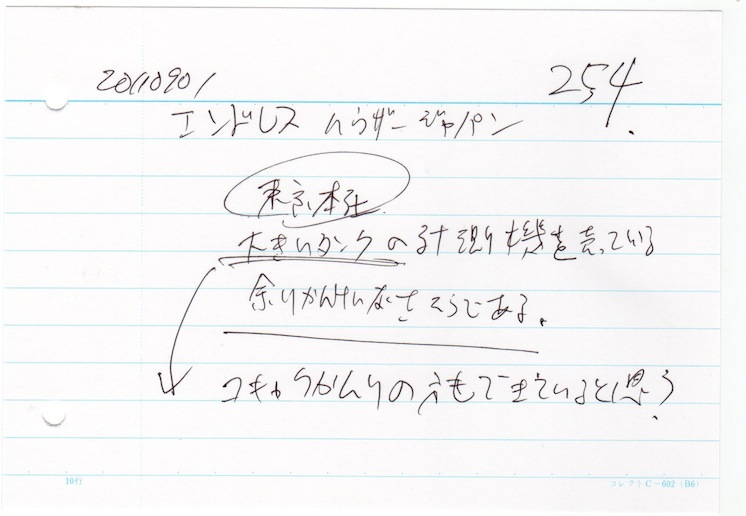 20110901
254.
エンドレス ハウザージャパン
東京本社
大きいタンクの計測機を売っている
余りかんけいなさそうである。
コキャクかんりの方もできていると思う
10行
コレクト C-602 (B6)